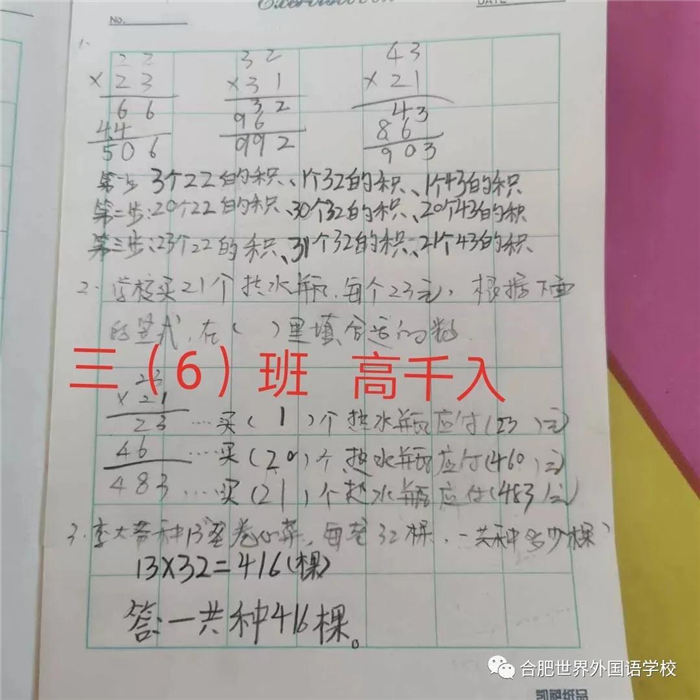 Exercise Book
No.
DATE
1. 22 32 43
×23 ×31 ×21
66 32 43
44 96 86
506 992 903
第一步:3个22的积、1个32的积、1个43的积
第二步:20个22的积、30个32的积、20个43的积
第三步:23个22的积、31个32的积、21个43的积
2. 学校买21个热水瓶,每个23元,根据下面
的竖式,在( )里填合适的数.
三(6)班 高千入
23
×21
23 …买(1)个热水瓶应付(23)元
46 …买(20)个热水瓶应付(460)元
483 …买(21)个热水瓶应付(483)元
3. 李大爷种13垄卷心菜,每垄32棵,一共种多少棵?
13×32=416(棵)
答:一共种416棵。
合肥世界外国语学校